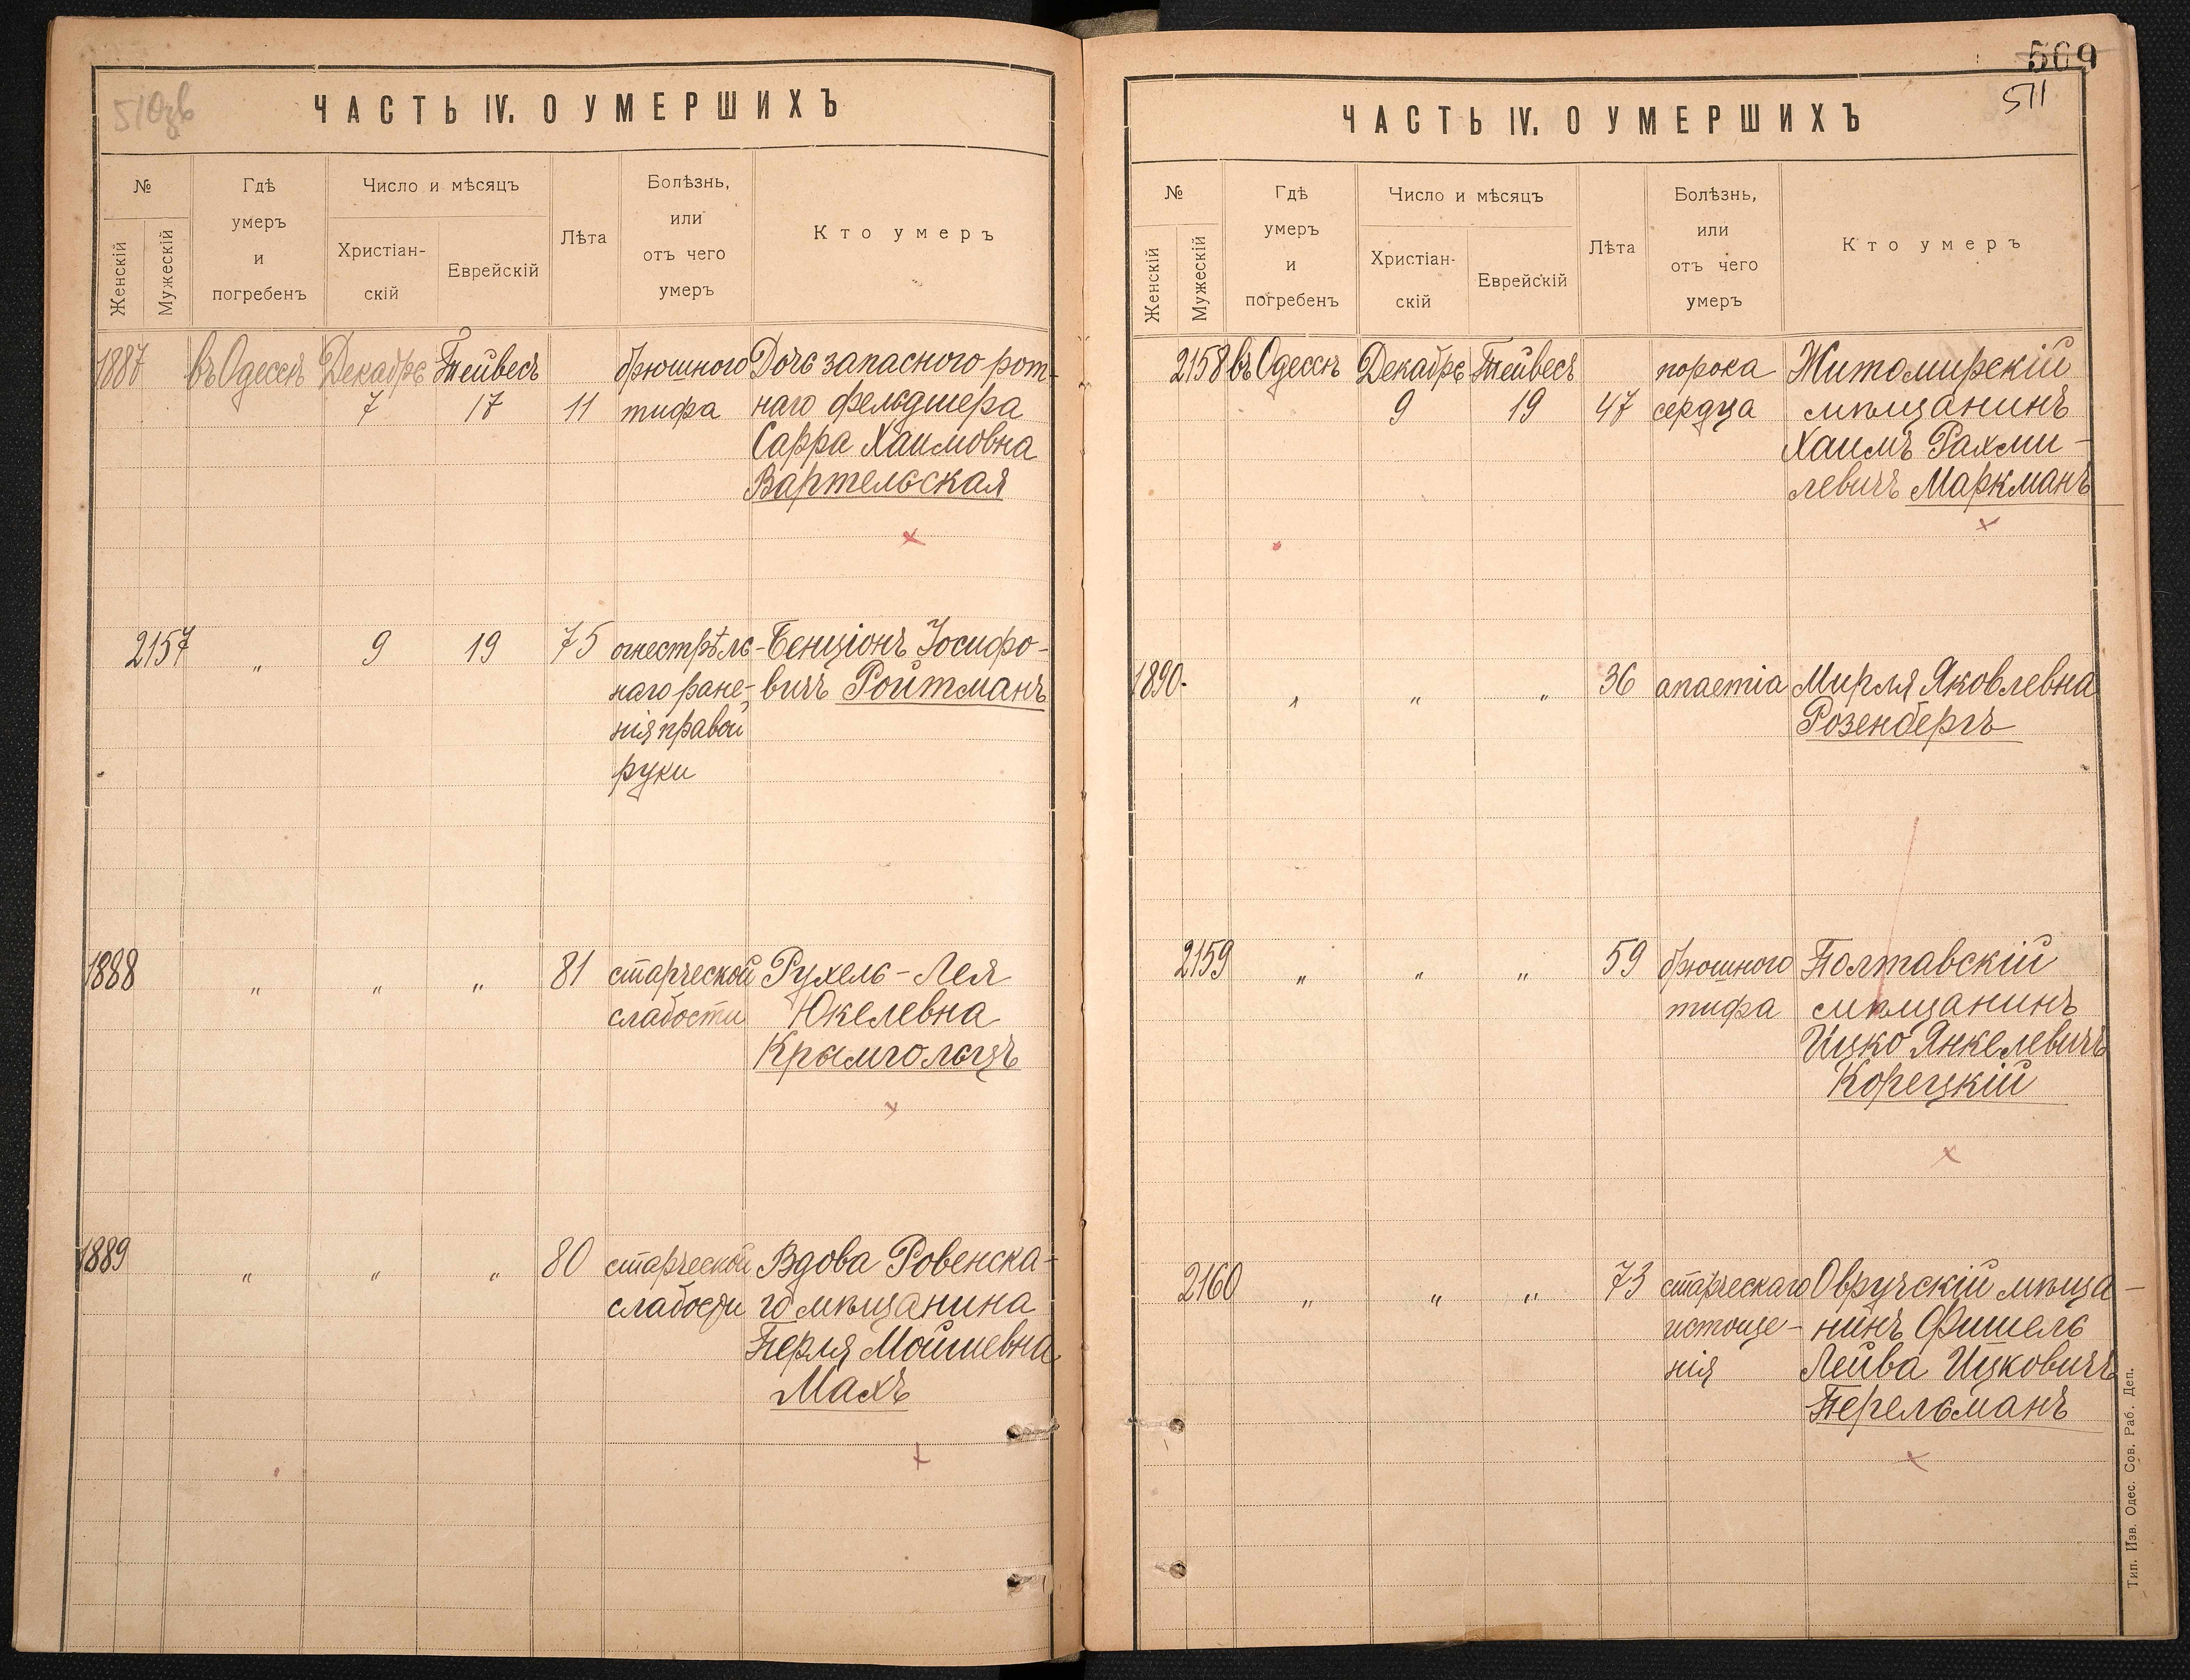 510зв
ЧАСТЬ IV. О УМЕРШИХЪ
№
Женскій
Мужескій
Гдѣ
умеръ
и
погребенъ
Число и мѣсяцъ
Христіан-
скій
Еврейскій
Лѣта
Болѣзнь,
или
отъ чего
умеръ
Кто умеръ
1887 въ Одессѣ Декабрь Тейвесъ брюшного Дочь запасного рот-
7 17 11 тифа наго фельдшера
Сарра Хаимовна
Вартельская
2157 " 9 19 75 огнестрѣль- Бенціонъ Іосифо-
наго ране- вичъ Ройтманъ
нія правой
руки
1888 " " " 81 старческой Рухель-Лея
слабости Юкелевна
Крымгольцъ
1889 " " " 80 старческой Вдова Ровенска-
слабости го мѣщанина
Перля Мойшевна
Махъ
509
511
ЧАСТЬ IV. О УМЕРШИХЪ
№
Женскій
Мужескій
Гдѣ
умеръ
и
погребенъ
Число и мѣсяцъ
Христіан-
скій
Еврейскій
Лѣта
Болѣзнь,
или
отъ чего
умеръ
Кто умеръ
2158 въ Одессѣ Декабрь Тейвесъ порока Житомирскій
9 19 47 сердца мѣщанинъ
Хаимъ Рахми-
левичъ Маркманъ
1890. " " " 36 anaemia Мирля Яковлевна
Розенбергъ
2159 " " " 59 брюшного Полтавскій
тифа мѣщанинъ
Ицко Янкелевичъ
Корецкій
2160 " " " 73 старческаго Овручскій мѣща-
истоще- нинъ Фишель
нія Лейва Ицковичъ
Перельманъ
Тип. Изв. Одес. Сов. Раб. Деп.